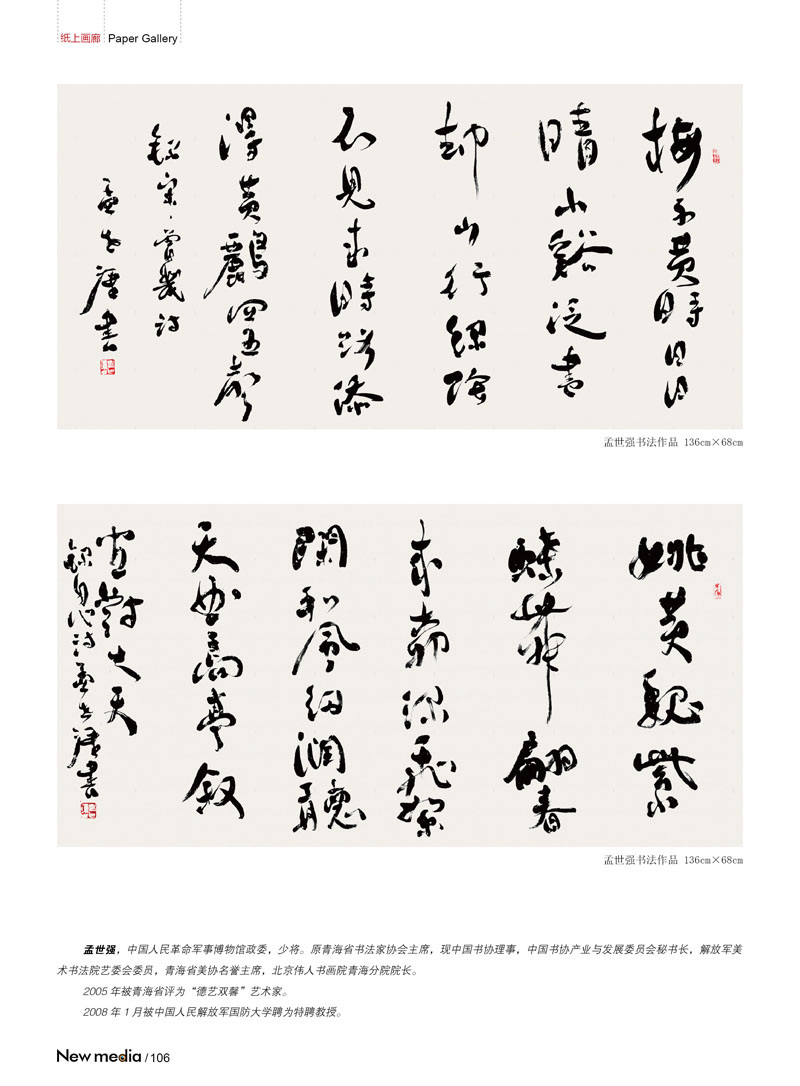 纸上画廊 Paper Gallery
梅子黄時日日
晴小谿泛盡
却山行緑陰
不見來時路添
得黄鸝四五聲
録宋·曾幾诗
孟世强書
孟世强书法作品 136cm×68cm
姚黄魏紫
蝶舞翩春
來
闌和風細潤聽
天高亭叙
孟世强書
孟世强书法作品 136cm×68cm
孟世强，中国人民革命军事博物馆政委，少将。原青海省书法家协会主席，现中国书协理事，中国书协产业与发展委员会秘书长，解放军美
术书法院艺委会委员，青海省美协名誉主席，北京伟人书画院青海分院院长。
2005年被青海省评为“德艺双馨”艺术家。
2008年1月被中国人民解放军国防大学聘为特聘教授。
New media / 106